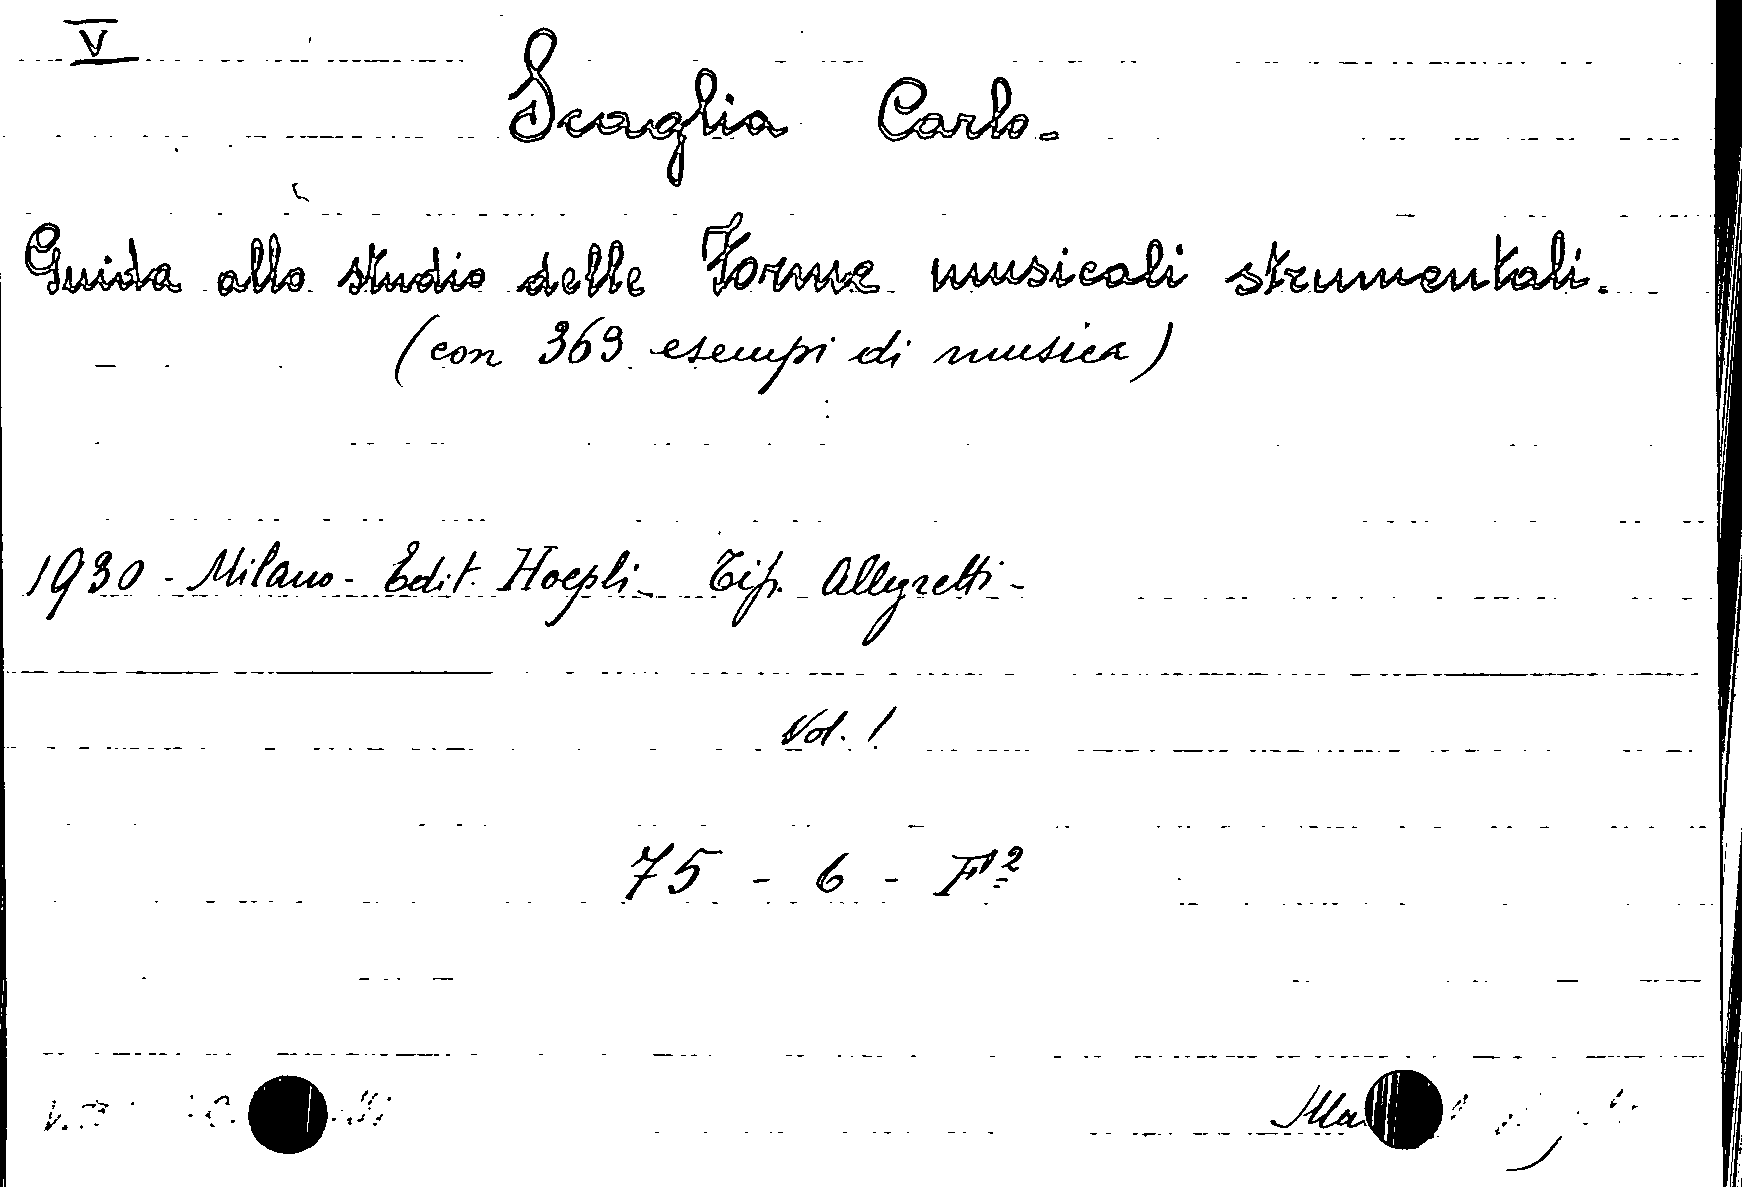 V
Scaglia Carlo.
Guida allo studio delle Forme musicali strumentali.
(con 369 esempi di musica)
1930 - Milano - Edit. Hoepli - Tip. Allegretti -
Vol. 1
75 - 6 - F²